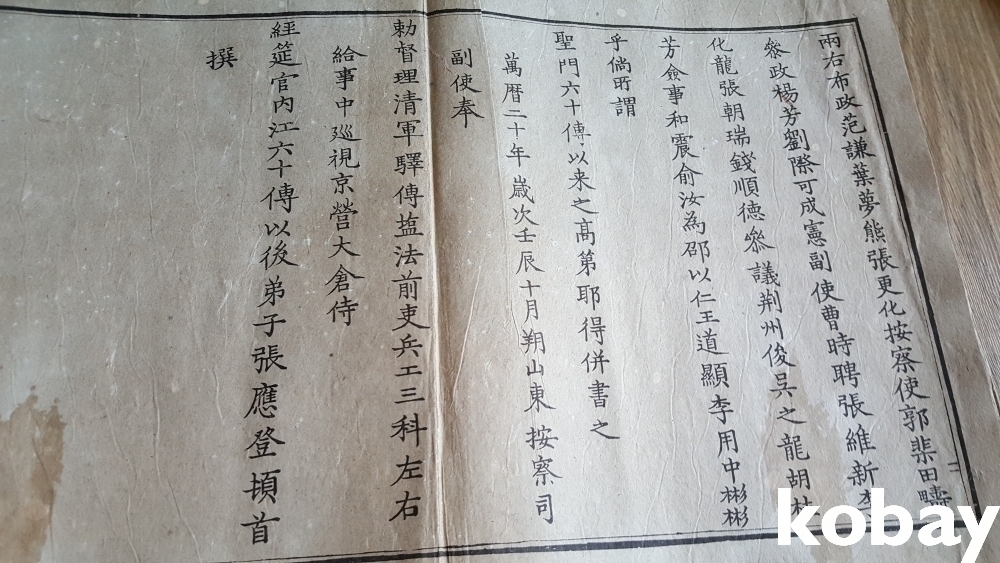 兩右布政范謙葉夢熊張更化按察使郭棐田疇
叅政楊芳劉際可成憲副使曹時聘張維新李
化龍張朝瑞錢順德叅議荆州俊吳之龍胡
芳僉事和震俞汝為邵以仁王道顯李用中彬彬
乎倘所謂
聖門六十傳以来之高第耶得併書之
萬曆二十年歲次壬辰十月朔山東按察司
副使奉
勅督理清軍驛傳塩法前吏兵工三科左右
給事中廵視京營大倉侍
經筵官内江六十傳以後弟子張應登頓首
撰
kobay